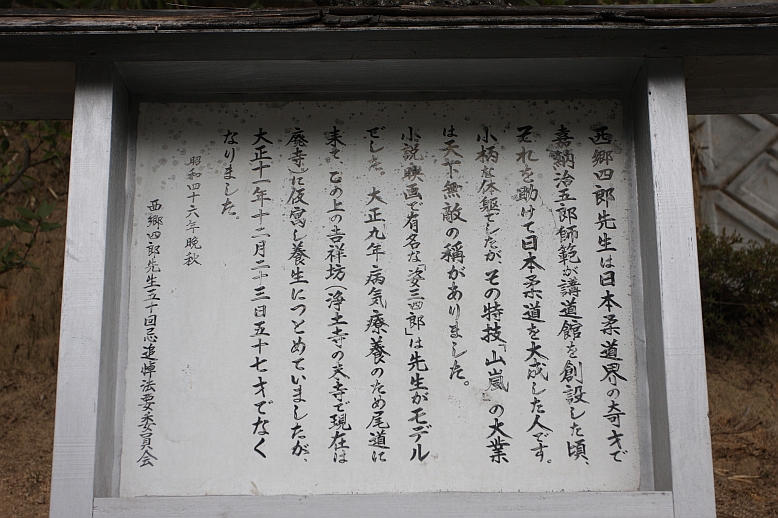 西郷四郎先生は日本柔道界の奇才で
嘉納治五郎師範が講道館を創設した頃、
それを助けて日本柔道を大成した人です。
小柄な体躯でしたが、その特技「山嵐」の大業
は天下無敵の稱がありました。
小説映画で有名な「姿三四郎」は先生がモデル
でした。大正九年病気療養のため尾道に
来て この上の吉祥坊(浄土寺の末寺で現在は
廃寺)に仮寓し養生につとめていましたが、
大正十一年十二月二十三日五十七才でなく
なりました。
昭和四十六年晩秋
西郷四郎先生五十回忌追悼法要委員会